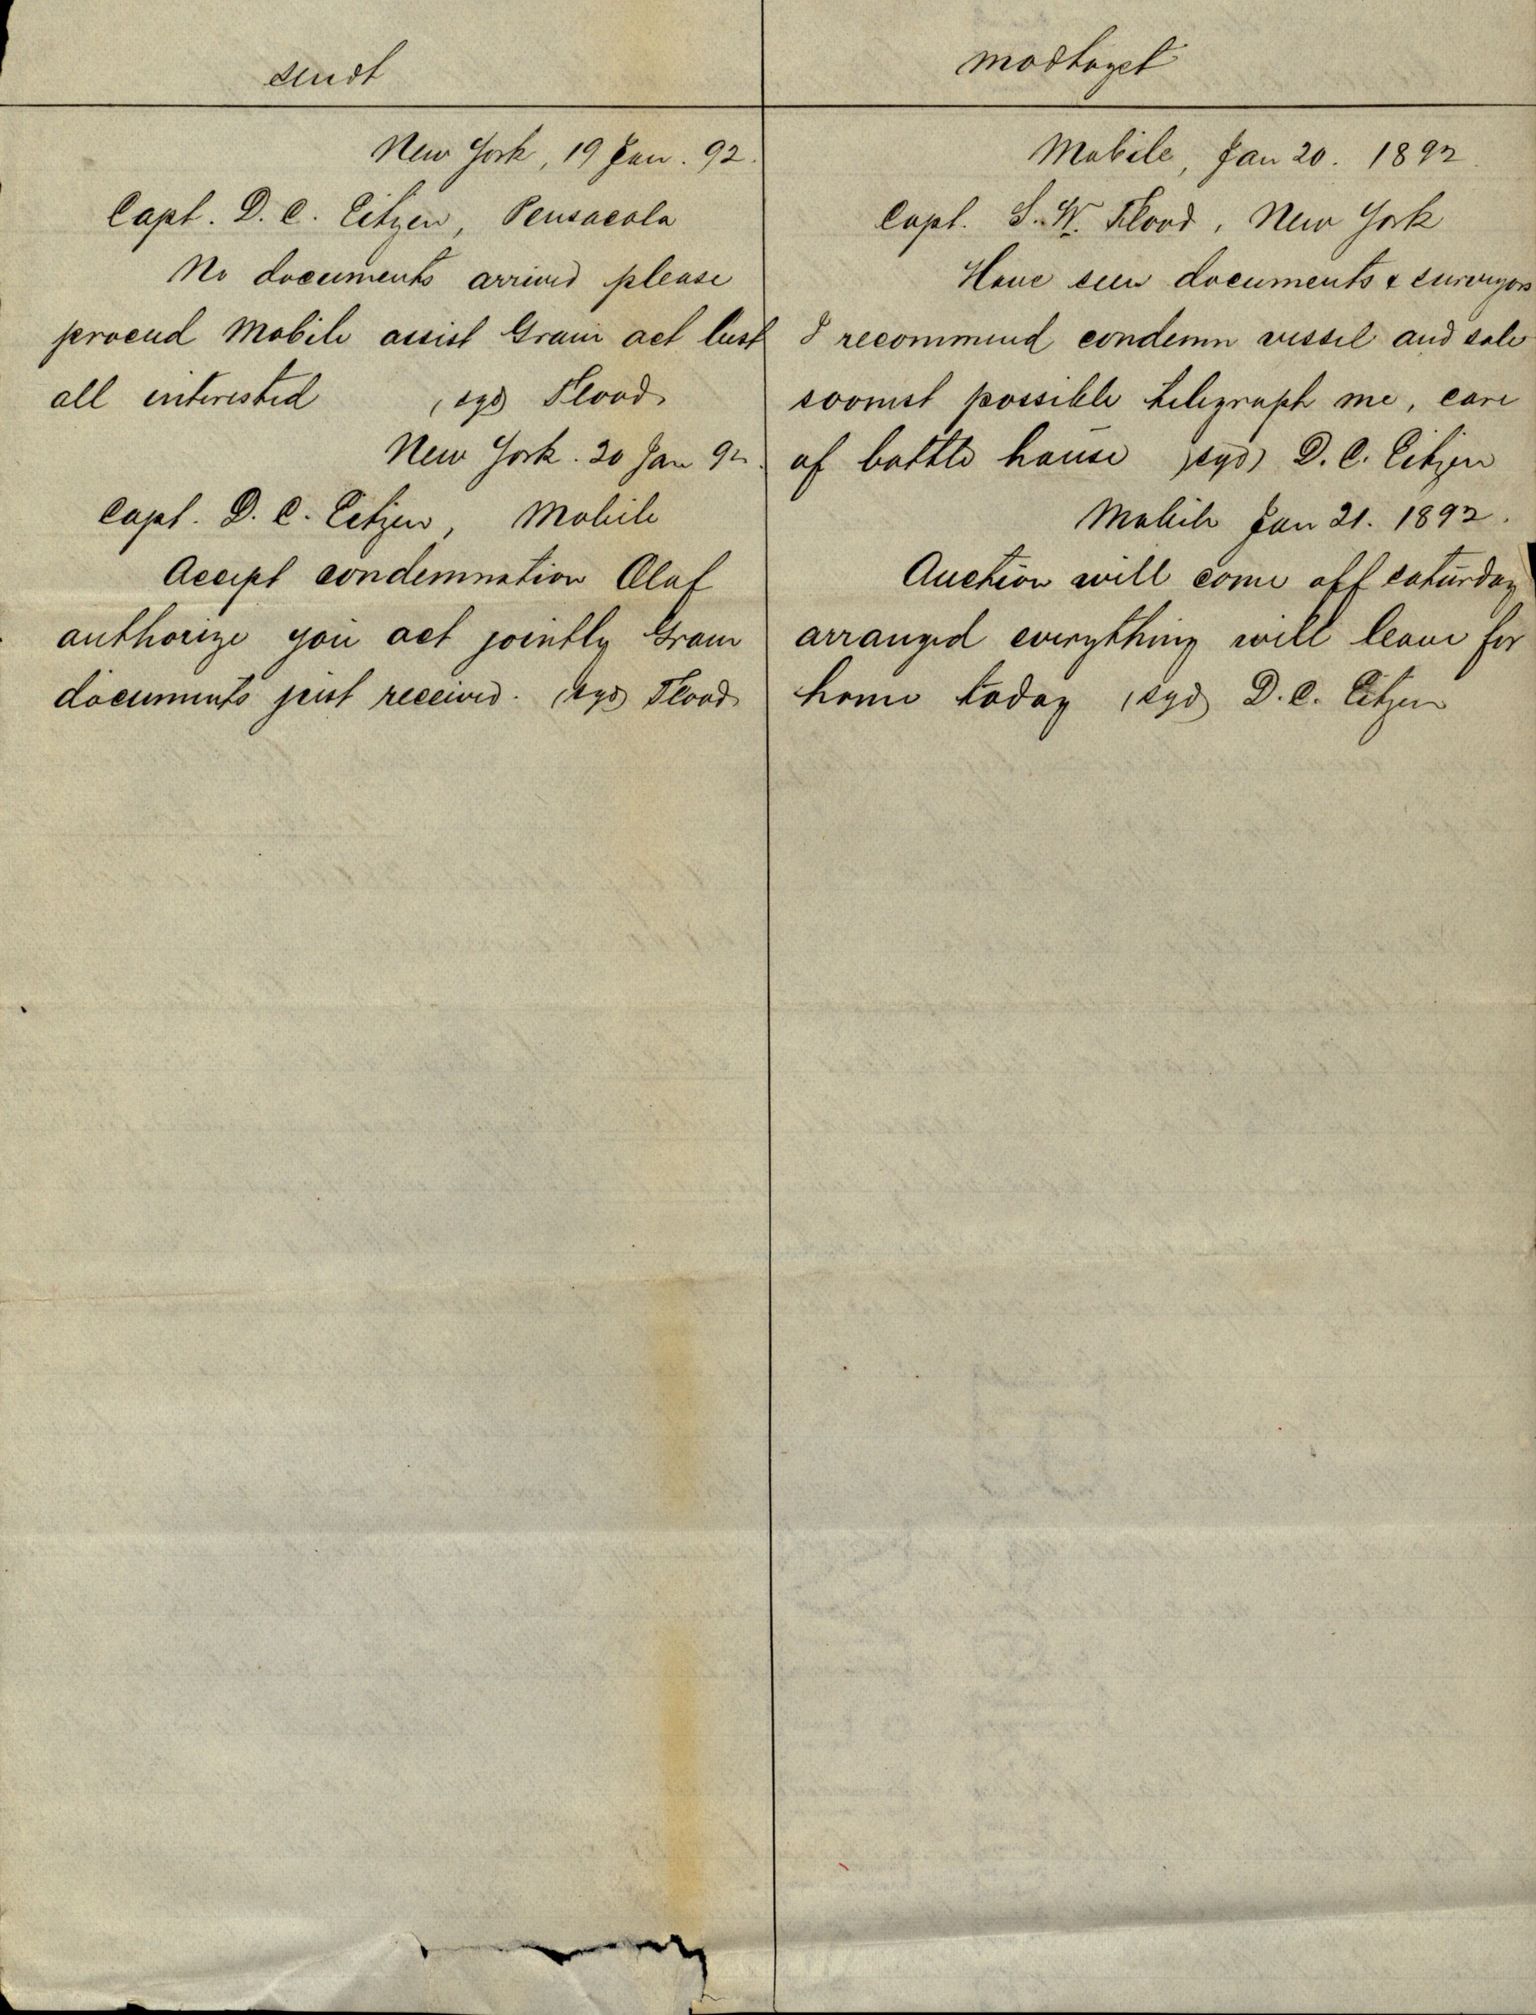 sendt
New York, 19 Jan. 92.
Capt. D. C. Eitzen, Pensacola
No documents arrived please
proceed Mobile assist Gram act best
all interested (sgd) Flood
New York. 20 Jan 92.
Capt. D. C. Eitzen, Mobile
Accept condemnation Olaf
authorize you act jointly Gram
documents just received. (sgd) Flood
modtaget
Mobile, Jan 20. 1892.
Capt. S. W. Flood, New York
Have seen documents & surveyors
I recommend condemn vessel and sale
soonest possible telegraph me, care
of battle house (sgd) D. C. Eitzen
Mobile Jan 21. 1892.
Auction will come off saturday
arranged everything will leave for
home today (sgd) D. C. Eitzen